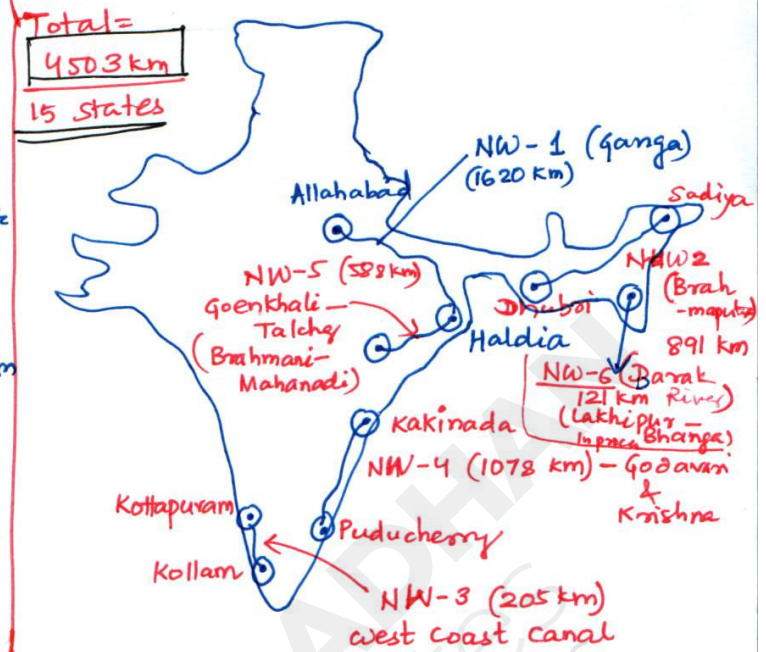 Total =
4503 km
15 states
NW-1 (Ganga)
(1620 km)
Allahabad
Sadiya
NW-5 (588km)
Goenkhali-
Talcher
(Brahmani-
Mahanadi)
Dhubri
Haldia
NW2
(Brah
-maputra)
891 km
NW-6 (Barak
121 km River)
(Lakhipur-
Bhanga)
Kakinada
NW-4 (1078 km) - Godavari
&
Krishna
Kottapuram
Puducherry
Kollam
NW-3 (205 km)
west coast canal
ADHAN